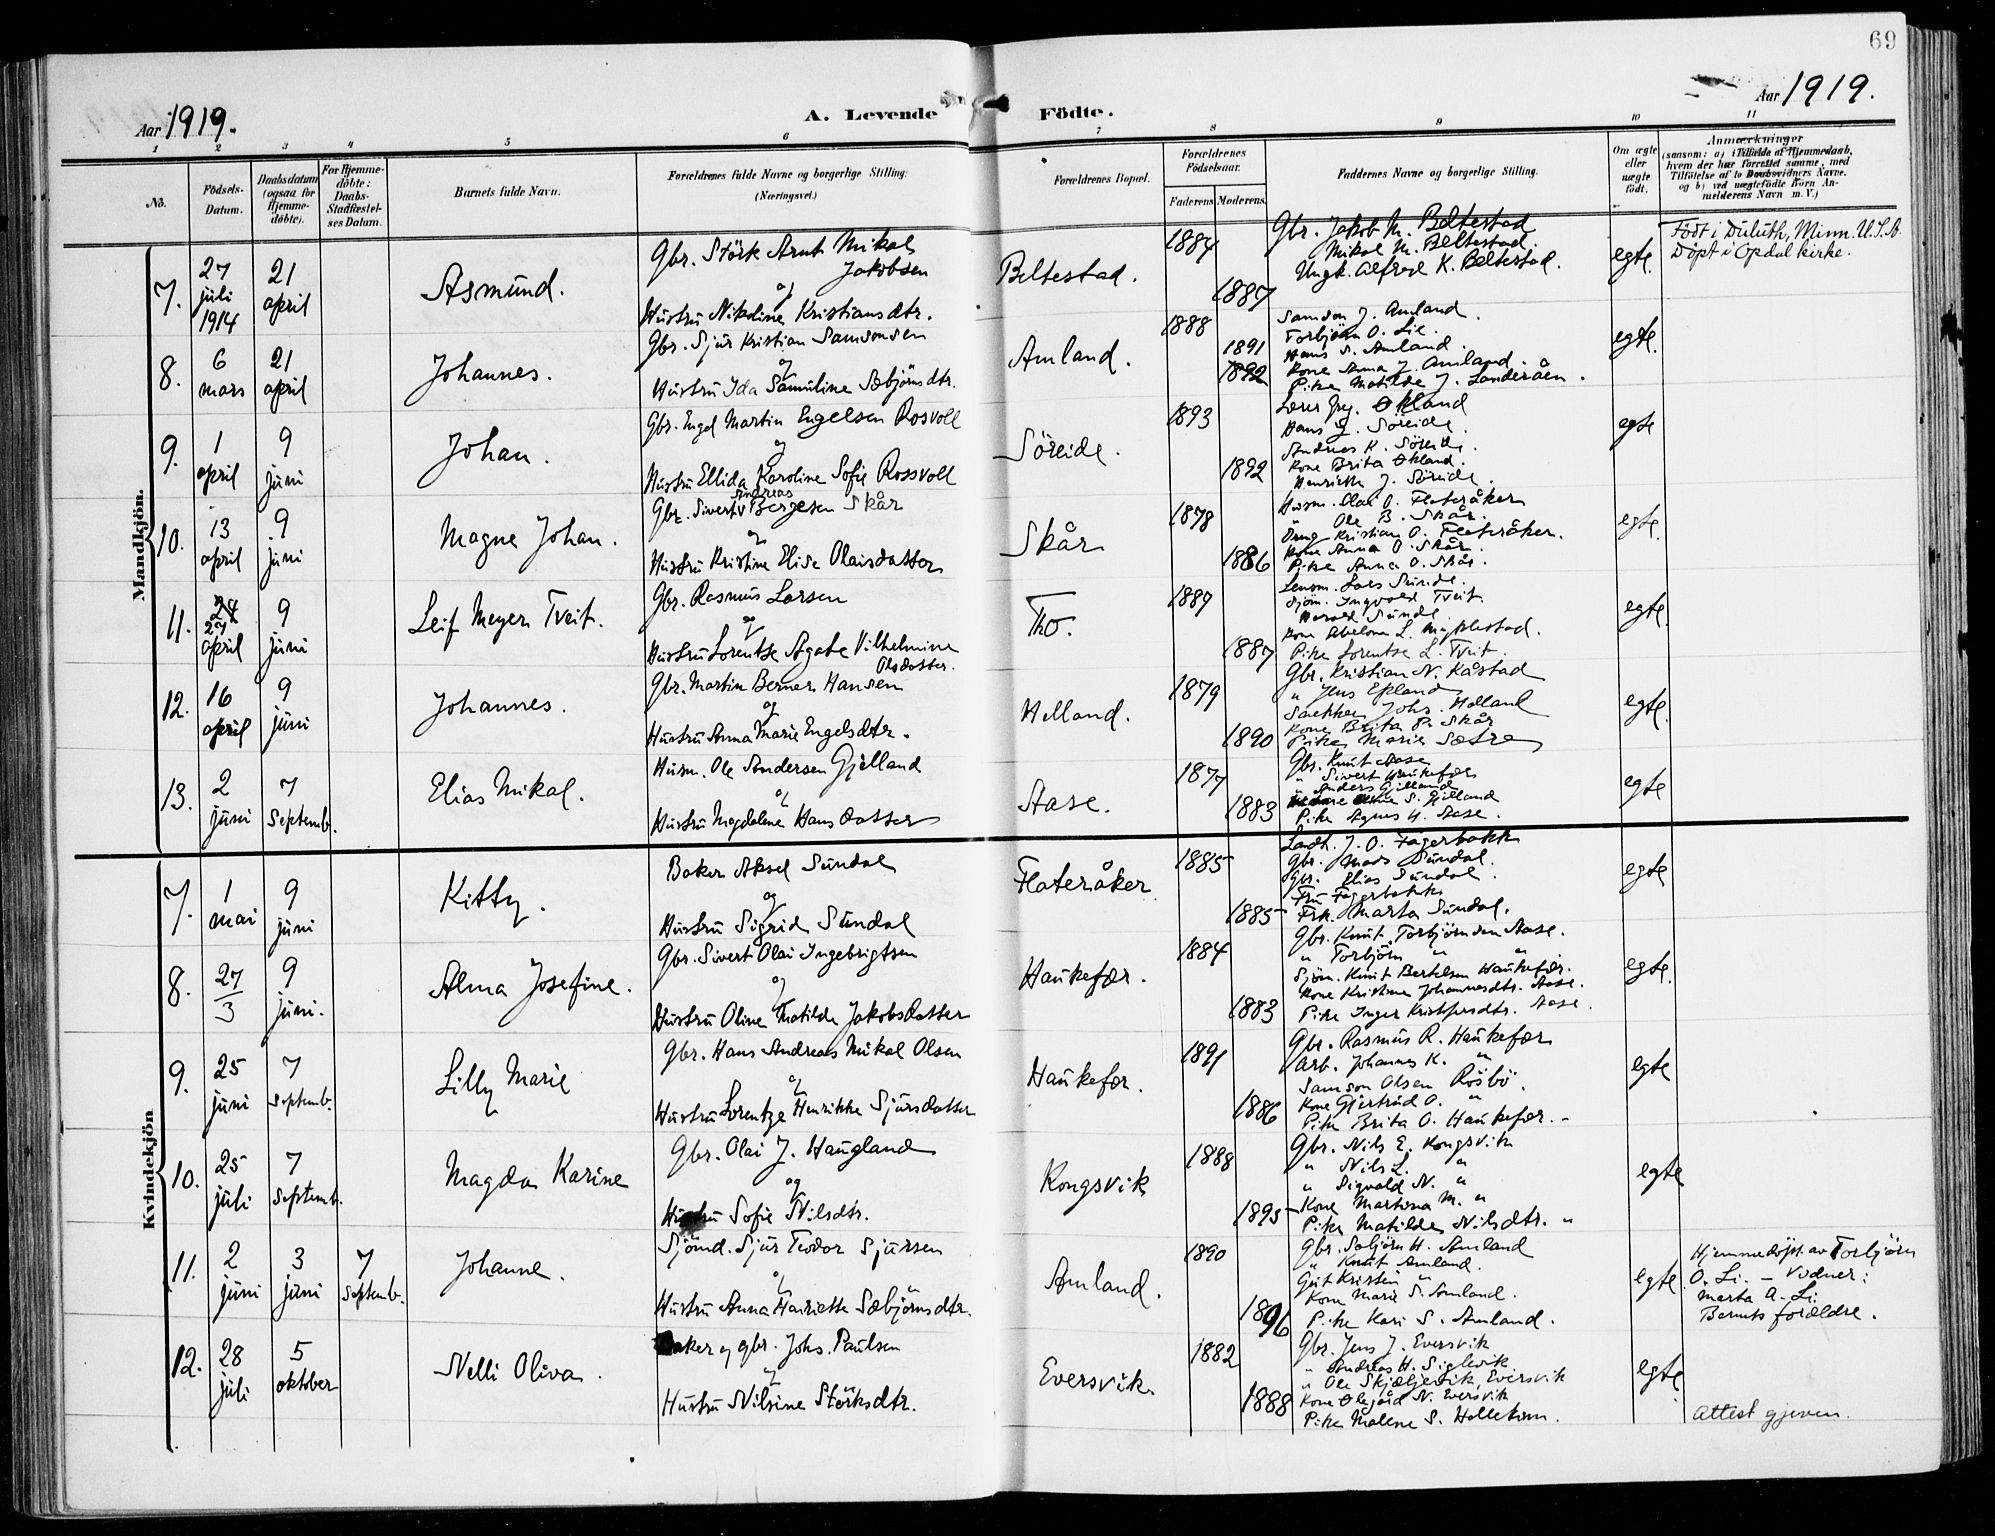 69
Aar 1919.
A. Levende Födte.
Aar 1919.
1 2 3 4 5 6 7 8 9 10 11
No.
Födsels-
Datum.
Daabsdatum
(ogsaa for
Hjemme-
döbte).
For Hjemme-
döbte:
Daabs-
Stadfæstel-
ses Datum.
Barnets fulde Navn.
Forældrenes fulde Navne og borgerlige Stilling.
(Næringsvei.)
Forældrenes Bopæl.
Forældrenes
Födselsaar.
Faderens. Moderens.
Faddernes Navne og borgerlige Stilling.
Om ægte
eller
uægte
födt.
Anmærkninger
(saasom: a) i Tilfælde af Hjemmedaab,
hvem der har forrettet samme, med
Tilföielse af to Daabsvidners Navne.
og b) ved uægtefödte Börn An-
melderens Navn m. V.)
Mandkjön.
7.
27
juli
1914
21
april
Asmund.
Gbr. Störk Arnt Mikal
Jakobsen
og
Hustru Nikoline Kristiansdtr.
Beltestad.
1884
1887
Gbr. Jakob M. Beltestad
Mikal M. Beltestad.
Ungk. Alfred K. Beltestad.
egte.
Födt i Duluth, Minn. U.S.A.
Döpt i Opdal kirke.
8.
6
mars
21
april
Johannes.
Gbr. Sjur Kristian Samsonsen
og
Hustru Ida Samuline Sæbjörnsdtr.
Amland.
1888
1891
1892
Samson J. Amland.
Torbjörn O. Lie.
Hans S. Amland.
Kone Anna J. Amland.
Pike Matilde J. Landeråen.
egte.
9.
1
april
9
juni
Johan.
Gbr. Engel Martin Engelsen Rosvoll
og
Hustru Ellida Karoline Sofie Rossvoll
Söreide.
1893
1892
Lærer Greg. Økland
Hans J. Söreide.
Andreas K. Söreide.
Kone Brita Økland.
Henriette J. Söreide.
egte
10.
13
april
9
juni
Magne Johan.
Andreas
Gbr. Sivert v Bergesen Skår
og
Hustru Kristine Elise Olaisdatter
Skår
1878
1886
Husm. Olai O. Flateråker
Ole B. Skår.
Dreng Kristian O. Flateråker.
Kone Anna O. Skår.
Pike Anna O. Skår.
egte.
11.
24
27
april
9
juni
Leif Meyer Tveit.
Gbr. Rasmus Larsen
og
Hustru Lorentse Agate Vilhelmine
Olsdatter.
Tho.
1889
1887
Lensm. Lars Sunde.
Sjöm. Ingvald Tveit.
Harald Sunde.
Kone Abelone L. Myklestad.
Pike Lorentse L. Tveit.
egte.
12.
16
april
9
juni
Johannes.
Gbr. Martin Berner Hansen
og
Hustru Anna Marie Engelsdtr.
Helland.
1879
1890
Gbr. Kristian N. Kåstad
" Jens Epland
Snekker Johs. Helland
Kone Brita P. Skår
Pike Marie Sætre
egte.
13.
2
juni
7
Septemb.
Elias Mikal.
Husm. Ole Andersen Gjelland
og
Hustru Magdalena Hansdatter
Aase.
1877
1883
Gbr. Knut Aase
" Sivert Haukefær
" Anders Gjelland
S. Gjelland
Pike Agnes H. Aase.
egte
Kvindekjön
7.
1
mai
9
juni
Kitty.
Baker Aksel Sundal
og
Hustru Sigrid Sundal
Flateråker
1885
1885
Landh. J. O. Fagerbakk
Gbr. Mads Sundal.
Gbr. Elias Sundal.
Fru Fagerbakk
Frk. Marta Sundal.
egte
8.
27
3
9
juni.
Alma Josefine.
Gbr. Sivert Olai Ingebrigtsen
og
Hustru Oline Matilde Jakobsdatter
Haukefær.
1884
1883
Gbr. Knut Torbjörnsen Aase.
" Torbjörn " "
Sjöm. Knut Bertelsen Haukefær.
Kone Kristine Johannesdtr. Aase.
Pike Inger Kristofersdtr. Aase.
egte.
9.
25
juni
7
Septemb.
Lilly Marie
Gbr. Hans Andreas Mikal Olsen
og
Hustru Lorentze Henrikke Sjursdatter
Haukefær.
1891
1886
Gbr. Rasmus R. Haukefær
Arb. Johannes K. "
Samson Olsen Rösbö.
Kone Gjertrud O. "
Pike Brita O. Haukefær.
egte
10.
25
juli
7
Septemb.
Magda Karine
Gbr. Olai J. Haugland
og
Hustru Sofie Nilsdtr.
Kongsvik
1888
1895
Gbr. Nils E. Kongsvik
" Nils L. "
" Sigvald N. "
Kone Martina M. "
Pike Matilde Nilsdtr. "
egte
11.
2
juni
3
juni
7
Septemb.
Johanne.
Sjömd. Sjur Teodor Sjursen
og
Hustru Anna Henriette Sæbjörnsdtr.
Amland.
1890
1896
Gbr. Sæbjörn H. Amland
" Knut Amland.
Gut Kristin "
Kone Marie S. Amland.
Pike Kari S. Amland.
egte.
Hjemmedöpt av Torbjörn
O. Li. - Vidner:
Marta A. Li.
Barnets forældre.
12.
28
juli
5
oktober
Nelli Oliva.
Baker og gbr. Johs. Paulsen
og
Hustru Nilsine Störksdtr.
Eversvik.
1882
1888
Gbr. Jens J. Eversvik
" Andreas H. Siglevik
" Ole Skjæljevik, Eversvik
Kone Olegård N. Eversvik
Pike Malene S. Hellekam.
egte
Attest gjeven.